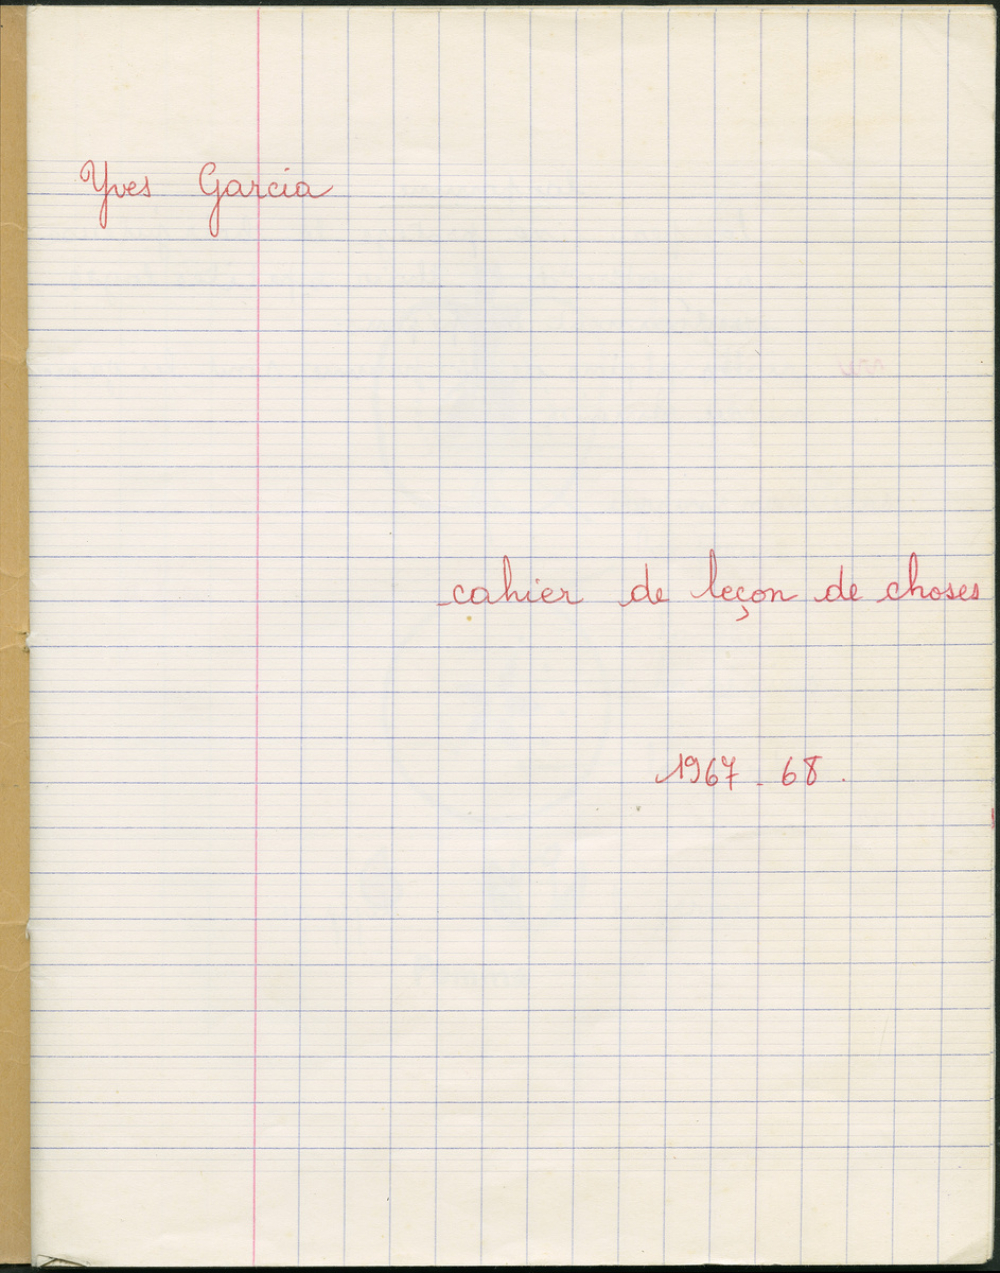 Yves Garcia
cahier de leçon de choses
1967 - 68.